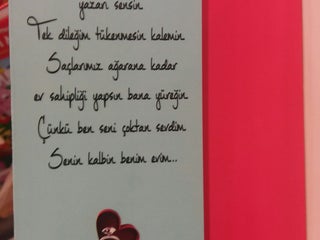 yazarı sensin
Tek dileğim tükenmesin kalemin
Saçlarımız ağarana kadar
ev sahipliği yapsın bana yüreğin
Çünkü ben seni çoktan sevdim
Senin kalbin benim evim...